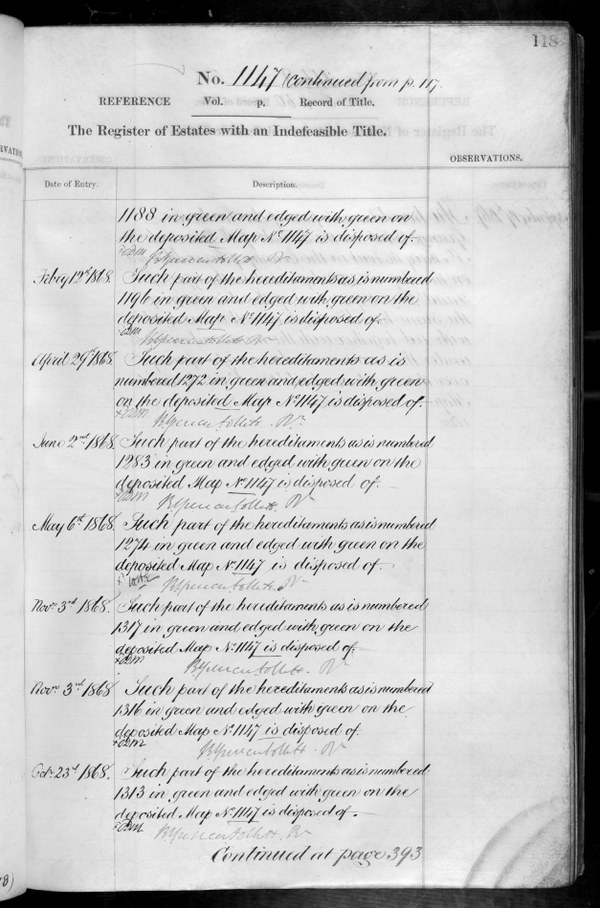 118
No. 1147 (continued from p. 117.
REFERENCE Vol. p. Record of Title.
The Register of Estates with an Indefeasible Title.
OBSERVATIONS.
Date of Entry. Description.
1188 in green and edged with green on
the deposited Map No 1147 is disposed of.
Feby 12th 1868. Such part of the hereditaments as is numbered
1196 in green and edged with green on the
deposited Map No 1147 is disposed of.
April 29th 1868. Such part of the hereditaments as is
numbered 1272 in green and edged with green
on the deposited Map No 1147 is disposed of.
June 2nd 1868. Such part of the hereditaments as is numbered
1283 in green and edged with green on the
deposited Map No 1147 is disposed of.
May 6th 1868. Such part of the hereditaments as is numbered
1274 in green and edged with green on the
deposited Map No 1147 is disposed of.
Novr 3rd 1868. Such part of the hereditaments as is numbered
1317 in green and edged with green on the
deposited Map No 1147 is disposed of.
Novr 3rd 1868. Such part of the hereditaments as is numbered
1316 in green and edged with green on the
deposited Map No 1147 is disposed of.
Oct. 23rd 1868. Such part of the hereditaments as is numbered
1313 in green and edged with green on the
deposited Map No 1147 is disposed of.
Continued at page 393